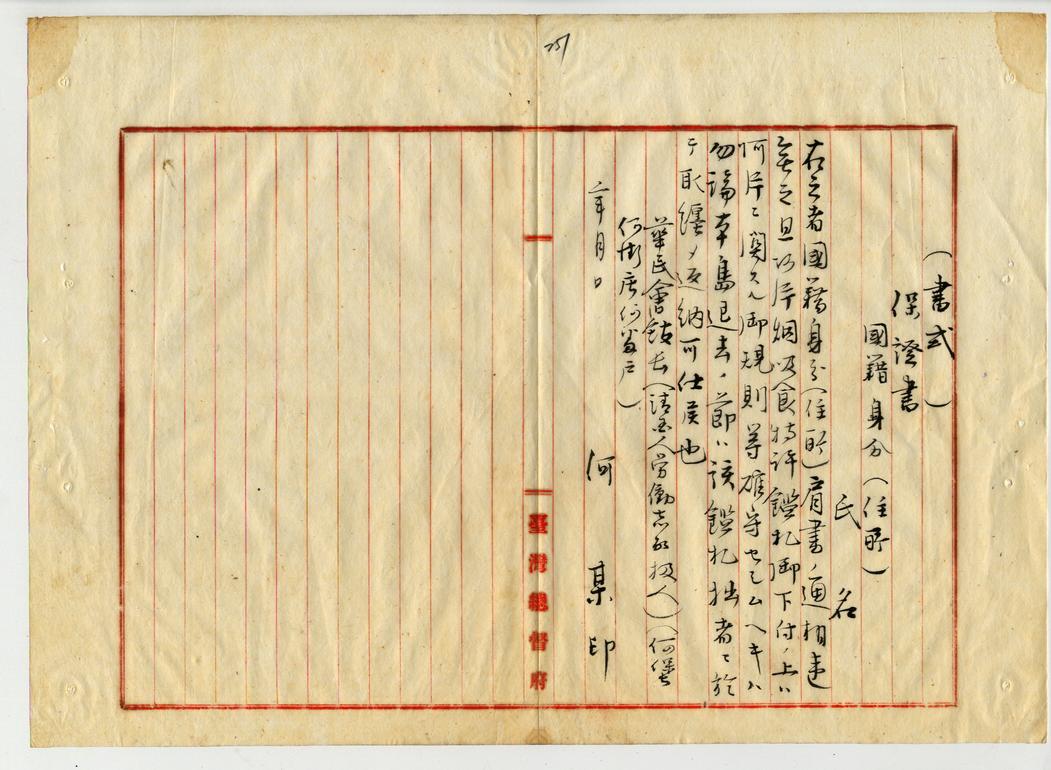 (書式)
保證書
國籍身分(住所)
氏名
右之者國籍身分(住所)肩書ノ通相違
無之且阿片烟吸食特許鑑札御下付ノ上ハ
阿片ニ関スル御規則等確守セシムヘキハ
勿論本島退去ノ節ハ該鑑札拙者ニ於
テ取纒メ返納可仕候也
華民會館長(清国人労働者取扱人)(何堡
何街庄何番戸)
年月日
何某印
臺灣總督府